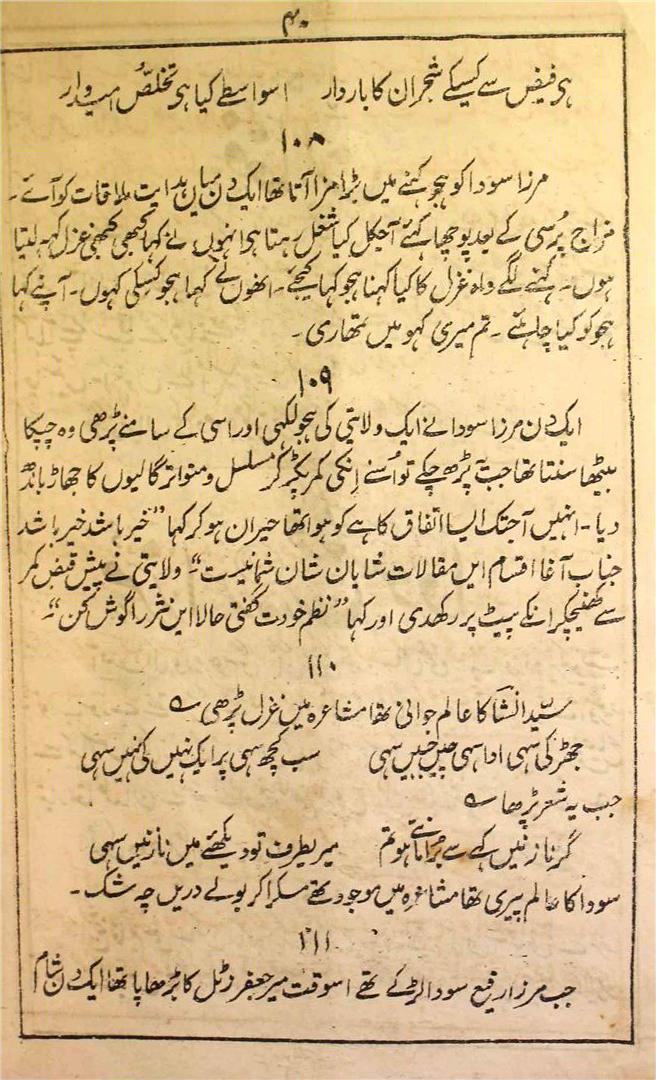 ۴۰
ہی فیض سے کسیکے شجر ان کا باردار اسواسطے کیا ہی تخلص امیدوار
۱۰۸
مرزا سودا کو ہجو کہنے میں بڑا مزا آتا تھا ایک دن میاں ہدایت ملاقات کو آئے۔
مزاج پرسی کے بعد پوچھا کہئے آجکل کیا شغل رہتا ہی انہوں نے کہا کبھی کبھی غزل کہہ لیتا
ہوں۔ کہنے لگے واہ غزل کا کیا کہنا ہجو کہا کیجے۔ انھوں نے کہا ہجو کسکی کہوں۔ آپنے کہا
ہجو کو کیا چاہئے۔ تم میری کہو میں تمھاری۔
۱۰۹
ایک دن مرزا سودا نے ایک ولایتی کی ہجو لکہی اور اسی کے سامنے پڑھی وہ چپکا
بیٹھا سنتا تھا جب یہ پڑھ چکے تو اُسنے انکی کمر پکڑ کر مسلسل و متواتر گالیوں کا جھاڑ باندھ
دیا۔ انہیں آجتک ایسا اتفاق کاہے کو ہوا تھا حیران ہو کر کہا ”خیر باشد خیر باشد
جناب آغا اقسام ایں مقالات شایان شان شما نیست“۔ ولایتی نے پیش قبض کمر
سے کھینچکر انکے پیٹ پر رکھدی اور کہا ”نظم خودت گفتی حالا این نثر را گوش کن“۔
۱۱۰
سید انشا کا عالم جوانی تھا مشاعرہ میں غزل پڑھی ؎
جھڑکی سہی ادا سہی چیں جبیں سہی سب کچھ سہی پر ایک نہیں کی نہیں سہی
جب یہ شعر پڑھا ؎
گر نازنیں کہے سے برا مانتے ہو تم میریطرف تو دیکھئے میں نازنیں سہی
سودا کا عالم پیری تھا مشاعرہ میں موجود تھے مسکرا کر بولے دریں چہ شک۔
۱۱۱
جب مرزا رفیع سودا لڑکے تھے اسوقت میر جعفر زٹل کا بڑھاپا تھا ایک دن شام